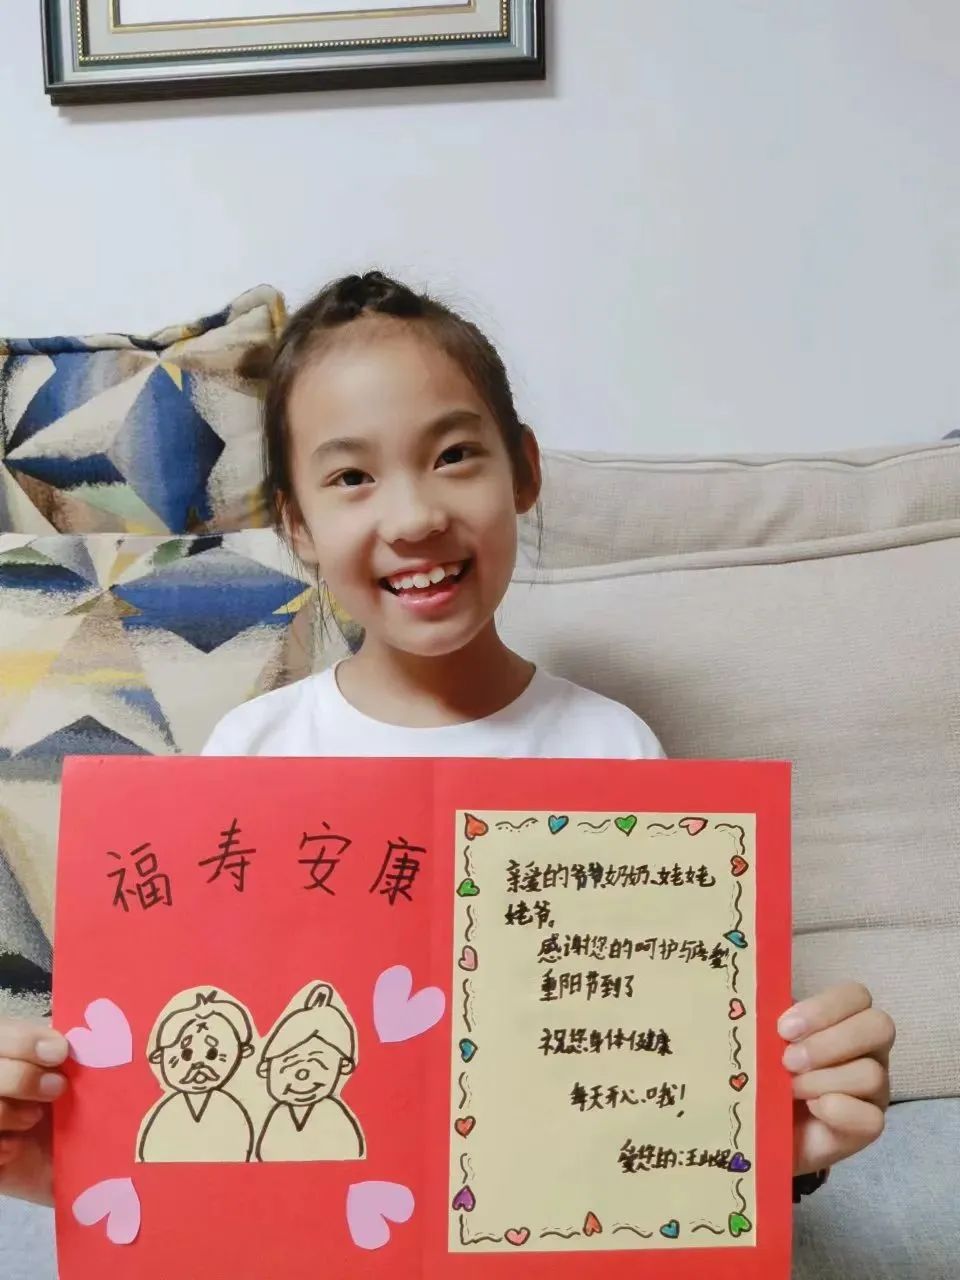 福寿安康
亲爱的爷爷奶奶、姥姥
姥爷,
感谢您的呵护与疼爱
重阳节到了
祝您身体健康
每天开心哦!
爱您的:王